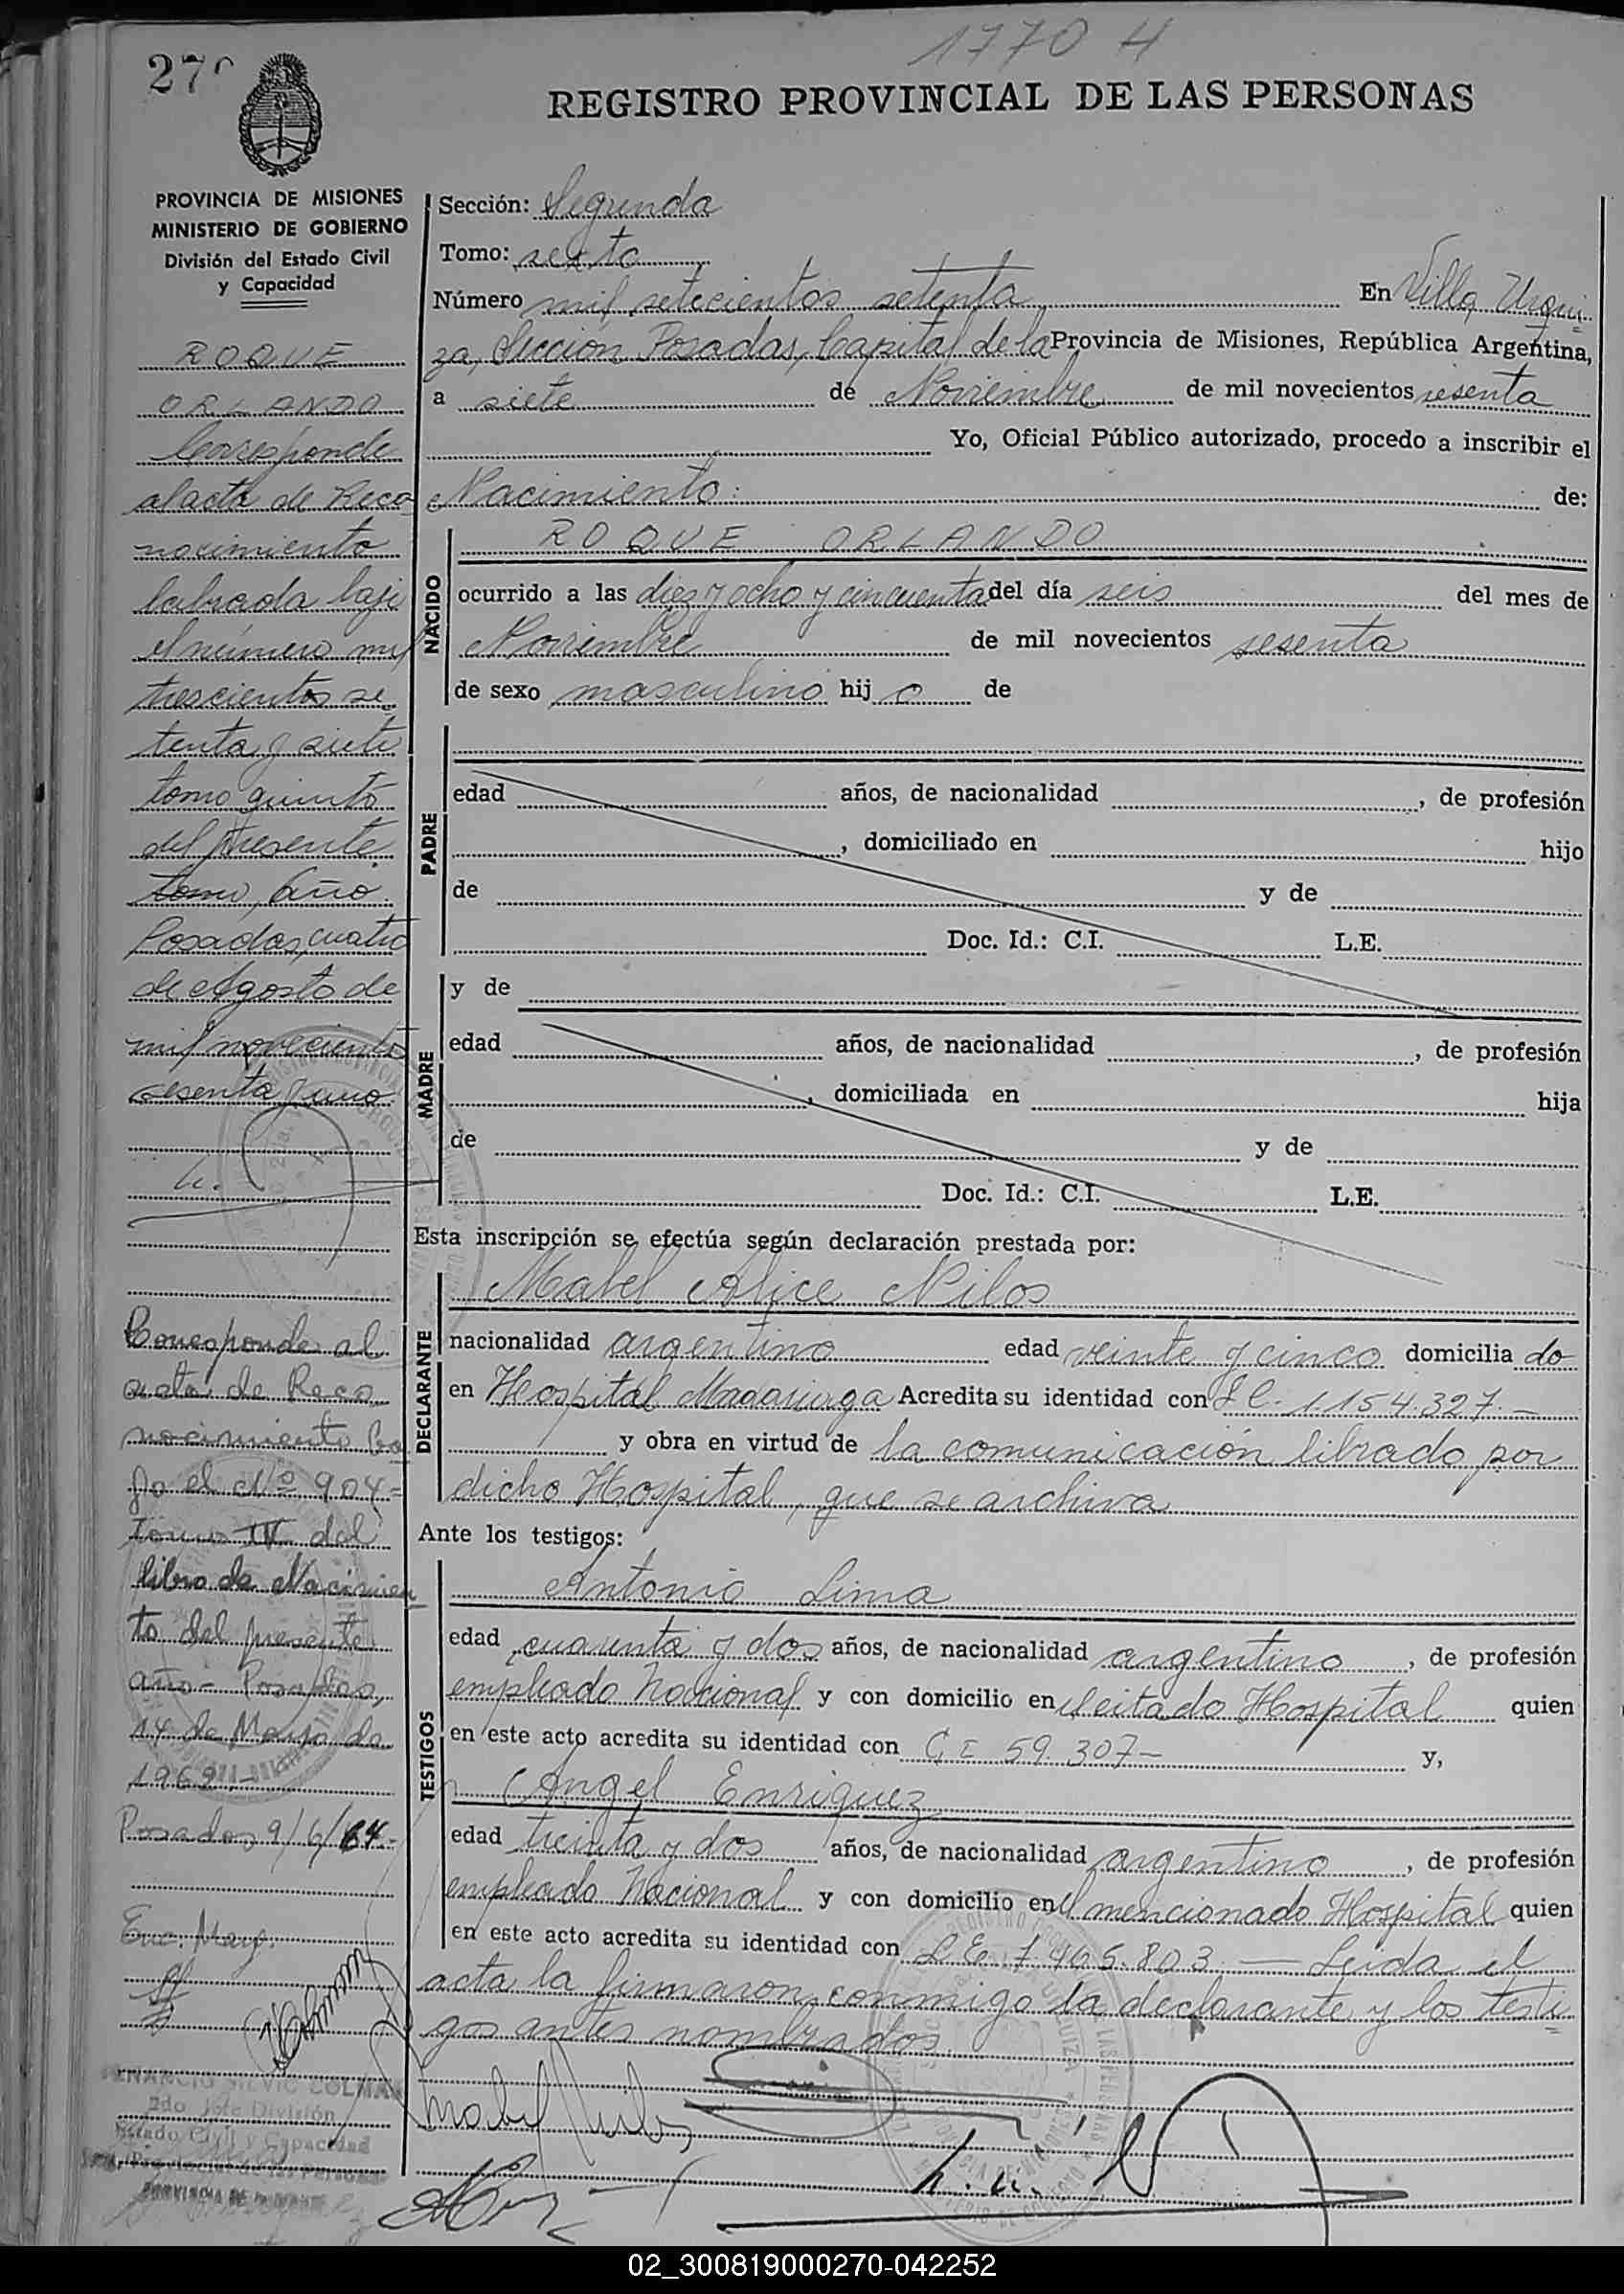 1770 H
REGISTRO PROVINCIAL DE LAS PERSONAS
PROVINCIA DE MISIONES
MINISTERIO DE GOBIERNO
División del Estado Civil
y Capacidad
ROQUE
ORLANDO
Corresponde
al acta de Reco
nocimiento
labrada bajo
el número mil
trescientos se
tenta y siete
tomo quinto
del presente
tomo, año.
Posadas, cuatro
de Agosto de
mil novecientos
sesenta y uno
Corresponde al
acta de Reco
nocimiento ba
jo el Nº 904=
tomo IV del
libro de Nacimien
to del presente
año - Posadas,
14 de Mayo de
1969.-
Posadas 9/6/64.-
Sección: Segunda
Tomo: sexto
Número mil setecientos setenta En Villa Urqui
za, Sección Posadas, Capital de la Provincia de Misiones, República Argentina,
a siete de Noviembre de mil novecientos sesenta
Yo, Oficial Público autorizado, procedo a inscribir el
Nacimiento: de:
NACIDO
ROQUE ORLANDO
ocurrido a las diez y ocho y cincuenta del día seis del mes de
Noviembre de mil novecientos sesenta
de sexo masculino hijo de
PADRE
edad años, de nacionalidad , de profesión
, domiciliado en hijo
de y de
Doc. Id.: C.I. L.E.
MADRE
y de
edad años, de nacionalidad , de profesión
, domiciliada en hija
de y de
Doc. Id.: C.I. L.E.
Esta inscripción se efectúa según declaración prestada por:
DECLARANTE
Mabel Alice Nilos
nacionalidad argentina edad veinte y cinco domicilia do
en Hospital Madariaga Acredita su identidad con L C. 1154.327.—
y obra en virtud de la comunicación librado por
dicho Hospital, que se archiva
Ante los testigos:
TESTIGOS
Antonio Lima
edad cuarenta y dos años, de nacionalidad argentino, de profesión
empleado Nacional y con domicilio en el citado Hospital quien
en este acto acredita su identidad con C I 59.307- y,
Angel Enriquez
edad treinta y dos años, de nacionalidad argentino, de profesión
empleado Nacional y con domicilio en el mencionado Hospital quien
en este acto acredita su identidad con L.E. 7.465.803.— Leida el
acta la firmaron conmigo la declarante y los testi
gos antes nombrados.
COLMAN
2do Jefe División
Estado Civil y Capacidad
02_300819000270-042252